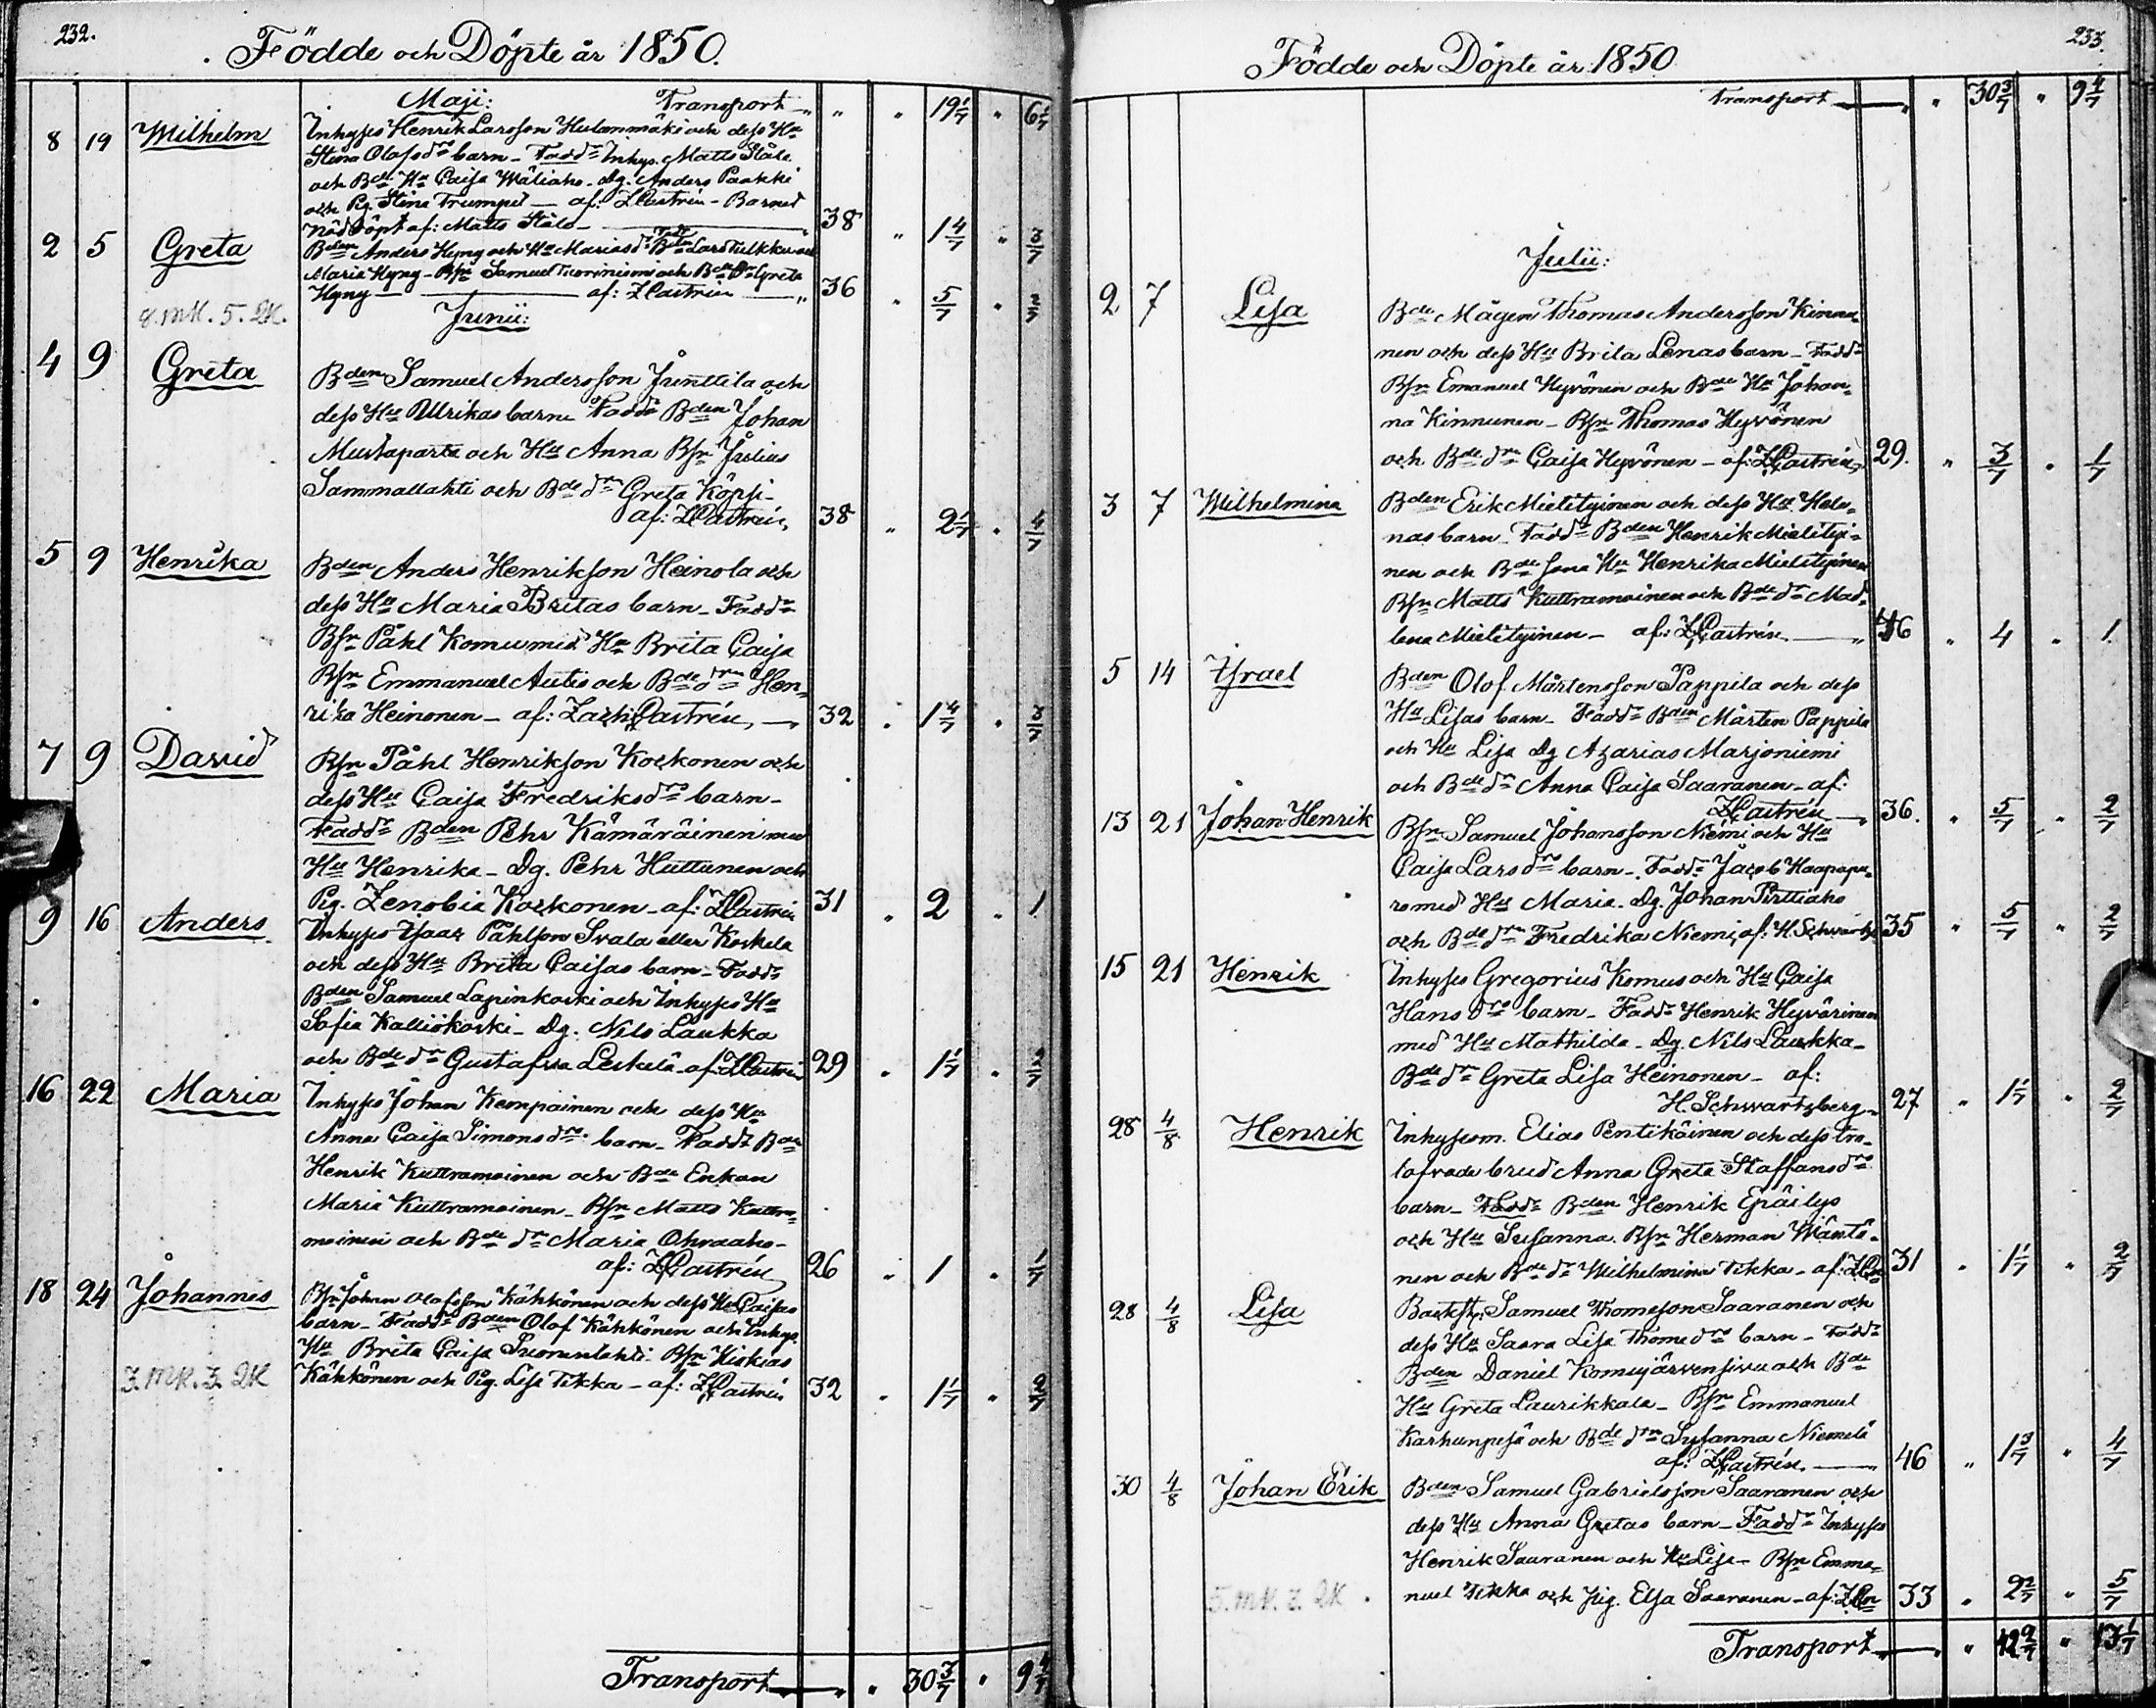 232.
Födde och Döpte år 1850.
Maji: Transport " " 19 1/7 " 6 1/7
8 19 Wilhelm Inhyses Henrik Larsson Hulanmäki och dess Hu
Stina Olofsdr barn - Faddr Inhys. Matts Ståle
och Bde Hu Caisa Wäliaho - Dg. Anders Paakki
och Pig. Stina Trumpet - af: Z Castrén - Barnet
Nöddöpt af: Matts Ståle 38 " 1 4/7 " 3/7
2 5 Greta Bden Anders Hyny och Hu Marias dr Faddr Bden Lars Tulkku och
Maria Hyny - Bsn Samuel Tuominiemi och Bde Dr Greta
Hyny - af: Z Castrén " 36 " 5/7 " 2/7
8. mk. 5. QK.
Junii:
4 9 Greta Bden Samuel Andersson Junttila och
dess Hu Ullrikas barn Faddr Bden Johan
Mustaparta och Hu Anna Bsn Julius
Sammallahti och Bde dr Greta Köpsi -
af: Z Castrén, 38 " 2 1/7 " 4/7
5 9 Henrika Bden Anders Henrikson Heinola och
dess Hu Maria Britas barn - Faddr
Bsn Påhl Komu med Hu Brita Caisa
Bsn Emmanuel Autio och Bde drn Hen-
rika Heinonen - af: Zach: Castrén, 32 " 1 4/7 " 3/7
7 9 David Bsn Påhl Henrikson Koskonen och
dess Hu Caisa Fredriksdrs barn -
Faddr Bden Pehr Kämäräinen med
Hu Henrika - Dg. Pehr Huttunen och
Pig. Zenobia Koskonen - af: Z Castrén 31 " 2 " 1
9 16 Anders Inhyses Isaac Påhlson Svala eller Koskela
och dess Hu Brita Caisas barn - Faddr
Bden Samuel Lapinkoski och Inhyses Hu
Sofia Kalliokoski - Dg. Nils Laukka
och Bde dr Gustafva Leskelä - af: Z Castrén 29 " 1 1/7 " 2/7
16 22 Maria Inhyses Johan Kempainen och dess Hu
Anna Caisa Simonsdrs barn - Faddr Bden
Henrik Kuttramoinen och Bde Enkan
Maria Kuttramoinen - Bsn Matts Kuttra-
moinen och Bde dr Maria Ohvaaho -
af: Z Castrén 26 " 1 " 1/7
18 24 Johannes Bsn Johan Olofsson Kähkönen och dess Hu Caisas
barn - Faddr Bden Olof Kähkönen och Inhys
Hu Brita Caisa Suorunlahti - Bsn Hiskias
Kähkönen och Pig. Lisa Tikka - af: Z Castrén 32 " 1 1/7 " 2/7
3. MK. 3. QK
Transport " " 30 3/7 " 9 4/7
233.
Födde och Döpte år 1850
Transport " " 30 3/7 " 9 4/7
Julii:
2 7 Lisa Bde Mågen Thomas Andersson Kinnu-
nen och dess Hu Brita Lenas barn - Faddr
Bsn Emanuel Hyvönen och Bde Hu Johan-
na Kinnunen - Bsn Thomas Hyvönen
och Bde drn Caisa Hyvönen - af: Z Castrén 29. " 3/7 " 1/7
3 7 Wilhelmina Bden Erik Mieletyinen och dess Hu Hele-
nas barn - Faddr Bden Henrik Mieletyi-
nen och Bde Sons Hu Henrika Mieletyinen
Bsn Matts Kuttramoinen och Bde dr Mad-
lena Mieletyinen - af: Z Castrén " 46 " 4 " 1.
5 14 Israel Bden Olof Mårtensson Pappila och dess
Hu Lisas barn - Faddr Bden Mårten Pappila
och Hu Lisa Dg Azarias Marjoniemi
och Bde dr Anna Caisa Saaranen - af:
Z Castrén 36. " 5/7 " 2/7
13 21 Johan Henrik Bsn Samuel Johansson Niemi och Hu
Caisa Lars drs barn - Faddr Jacob Haapapu-
ro med Hu Maria - Dg. Johan Pirttiaho
och Bde drn Fredrika Niemi, af: H. Schwartzb 35 " 5/7 " 2/7
15 21 Henrik Inhyses Gregorius Komus och Hu Caisa
Hans drs barn - Faddr Henrik Hyvärinen
med Hu Mathilda - Dg. Nils Laukka -
Bde dr Greta Lisa Heinonen - af:
H. Schwartzberg 27 " 1 1/7 " 2/7
28 4/8 Henrik Inhysesm. Elias Pentikäinen och dess tro-
lofvade brud Anna Greta Staffansdrs
barn - Faddr Bden Henrik Epäilys
och Hu Susanna. Bsn Herman Mäntö-
nen och Bde dr Wilhelmina Tikka - af: Z Cn 31 " 1 1/7 " 2/7
28 4/8 Lisa Backst: Samuel Thomeson Saaranen och
dess Hu Saara Lisa Thomedrs barn - Faddr
Bden Daniel Komujärvensivu och Bde
Hu Greta Laurikkala - Bsn Emmanuel
Karhunpesä och Bde drn Susanna Niemelä
af: Z Castrén. 46 " 1 3/7 " 4/7
30 4/8 Johan Erik Bden Samuel Gabrielsson Saaranen och
dess Hu Anna Gretas barn - Faddr Inhyses
Henrik Saaranen och Hu Lisa - Bsn Emma-
nuel Tikka och Pig. Elsa Saaranen - af: Z Cn 33 " 2 2/7 " 5/7
5. mk. 3. QK.
Transport " " 42 2/7 " 13 1/7